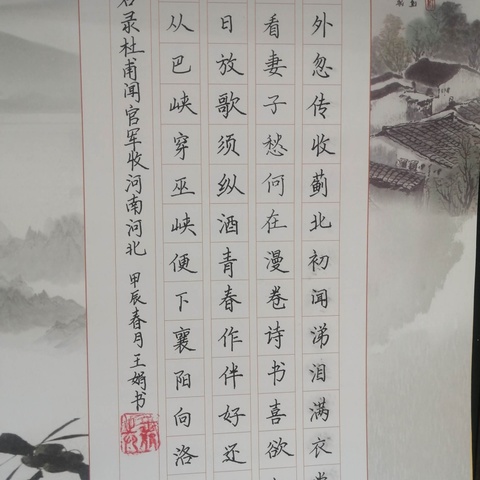 外忽传收蓟北初闻涕泪满衣裳
看妻子愁何在漫卷诗书喜欲
日放歌须纵酒青春作伴好还
从巴峡穿巫峡便下襄阳向洛
录杜甫闻官军收河南河北 甲辰春月王娟书